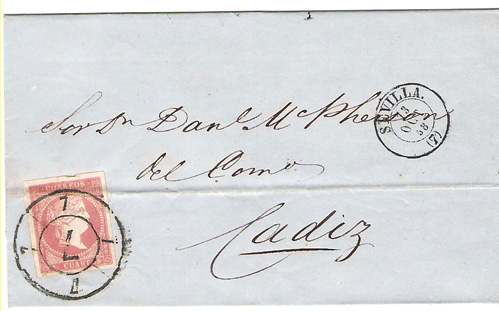 SEVILLA.
OCT
58
(7)
Sor Dn Danl McPherson
del Como
Cadiz
CORREOS
7